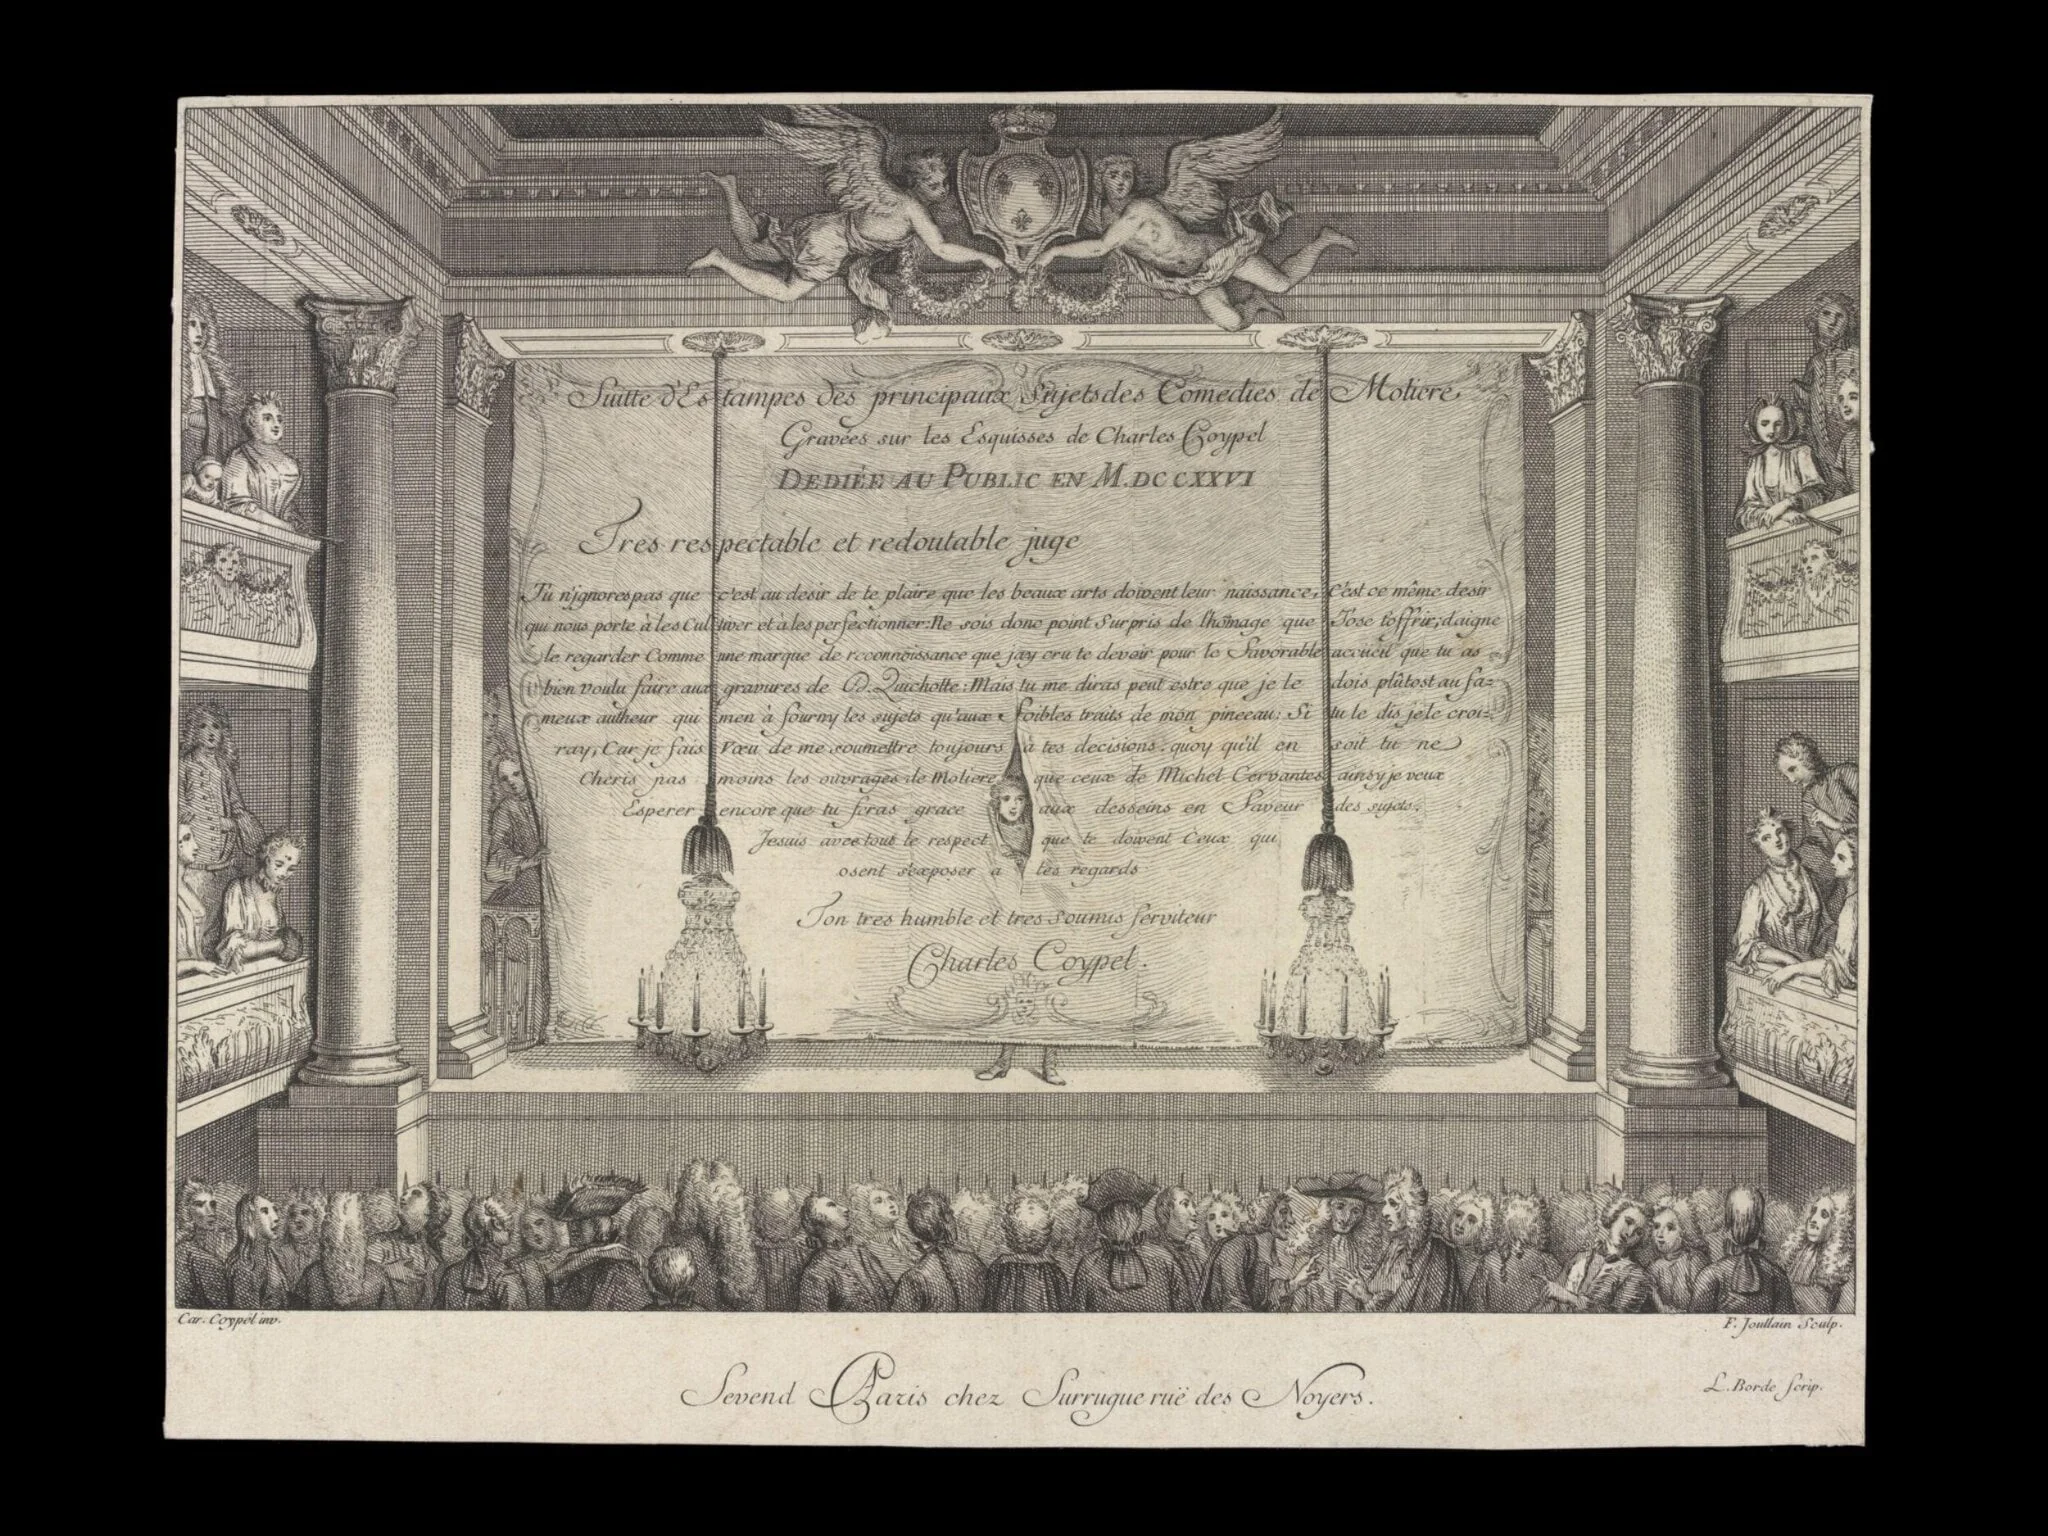 Suitte d'Estampes des principaux Sujets des Comedies de Moliere,
Gravées sur les Esquisses de Charles Coypel
DEDIÉE AU PUBLIC EN M.DCCXXVI
Tres respectable et redoutable juge
Tu n'ignores pas que c'est au desir de te plaire que les beaux arts doivent leur naissance, c'est ce même desir
qui nous porte à les Cultiver et à les perfectionner: Ne sois donc point Surpris de l'hõmage que J'ose t'offrir, daigne
le regarder Comme une marque de reconnoissance que jay cru te devoir pour le Favorable accueil que tu as
bien voulu faire aux gravures de D. Quichotte: Mais tu me diras peut estre que je le dois plûtost au fa-
meux autheur qui men à fourny les sujets qu'aux Foibles traits de mon pinceau; Si tu le dis je le croi-
ray, Car je fais Vœu de me soumettre toujours à tes decisions. quoy qu'il en soit tu ne
Cheris pas moins les ouvrages de Moliere que ceux de Michel Cervantes ainsy je veux
Esperer encore que tu feras grace aux desseins en Faveur des sujets.
Jesuis avec tout le respect que te doivent Ceux qui
osent s'exposer à tes regards
Ton tres humble et tres soumis serviteur
Charles Coypel.
Car. Coypel inv.
F. Joullain Sculp.
Sevend A Paris chez Surrugue ruë des Noyers.
L. Borde scrip.